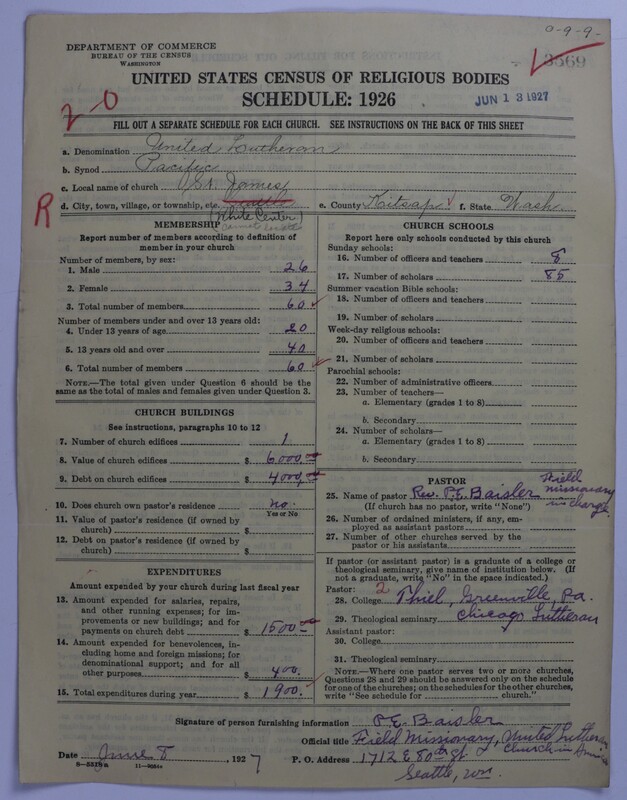 0-9-9-
3569
DEPARTMENT OF COMMERCE
BUREAU OF THE CENSUS
WASHINGTON
UNITED STATES CENSUS OF RELIGIOUS BODIES
SCHEDULE: 1926
JUN 13 1927
2-0
FILL OUT A SEPARATE SCHEDULE FOR EACH CHURCH. SEE INSTRUCTIONS ON THE BACK OF THIS SHEET
a. Denomination United Lutheran
b. Synod Pacific
c. Local name of church St. James
R
d. City, town, village, or township, etc. Seattle e. County Kitsap f. State Wash
(White Center)
MEMBERSHIP
Report number of members according to definition of
member in your church
Number of members, by sex:
1. Male 26
2. Female 34
3. Total number of members 60
Number of members under and over 13 years old:
4. Under 13 years of age 20
5. 13 years old and over 40
6. Total number of members 60
NOTE.—The total given under Question 6 should be
the same as the total of males and females given under Question 3.
CHURCH BUILDINGS
See instructions, paragraphs 10 to 12
7. Number of church edifices 1
8. Value of church edifices $ 6000.00
9. Debt on church edifices $ 4000.00
10. Does church own pastor's residence no
Yes or No
11. Value of pastor's residence (if owned by
church) $
12. Debt on pastor's residence (if owned by
church) $
EXPENDITURES
Amount expended by your church during last fiscal year
13. Amount expended for salaries, repairs,
and other running expenses; for im-
provements or new buildings; and for
payments on church debt $ 1500
14. Amount expended for benevolences, in-
cluding home and foreign missions; for
denominational support; and for all
other purposes $ 400.
15. Total expenditures during year $ 1900.
CHURCH SCHOOLS
Report here only schools conducted by this church
Sunday schools:
16. Number of officers and teachers 8
17. Number of scholars 85
Summer vacation Bible schools:
18. Number of officers and teachers
19. Number of scholars
Week-day religious schools:
20. Number of officers and teachers
21. Number of scholars
Parochial schools:
22. Number of administrative officers
23. Number of teachers—
a. Elementary (grades 1 to 8)
b. Secondary
24. Number of scholars—
a. Elementary (grades 1 to 8)
b. Secondary
PASTOR
25. Name of pastor Rev. P.E. Baisler Field missionary in charge
(If church has no pastor, write "None")
26. Number of ordained ministers, if any, em-
ployed as assistant pastors
27. Number of other churches served by the
pastor or his assistants
If pastor (or assistant pastor) is a graduate of a college or
theological seminary, give name of institution below. (If
not a graduate, write "No" in the space indicated.)
Pastor: 2
28. College Thiel, Greenville, Pa.
29. Theological seminary Chicago Lutheran
Assistant pastor:
30. College
31. Theological seminary
NOTE.—Where one pastor serves two or more churches,
Questions 28 and 29 should be answered only on the schedule
for one of the churches; on the schedules for the other churches,
write "See schedule for church."
Signature of person furnishing information P.E. Baisler
Official title Field Missionary, United Lutheran
Church in America
Date June 8, 1927 P. O. Address 1712 E 80th St
Seattle, Wn.
8-5519a 11-